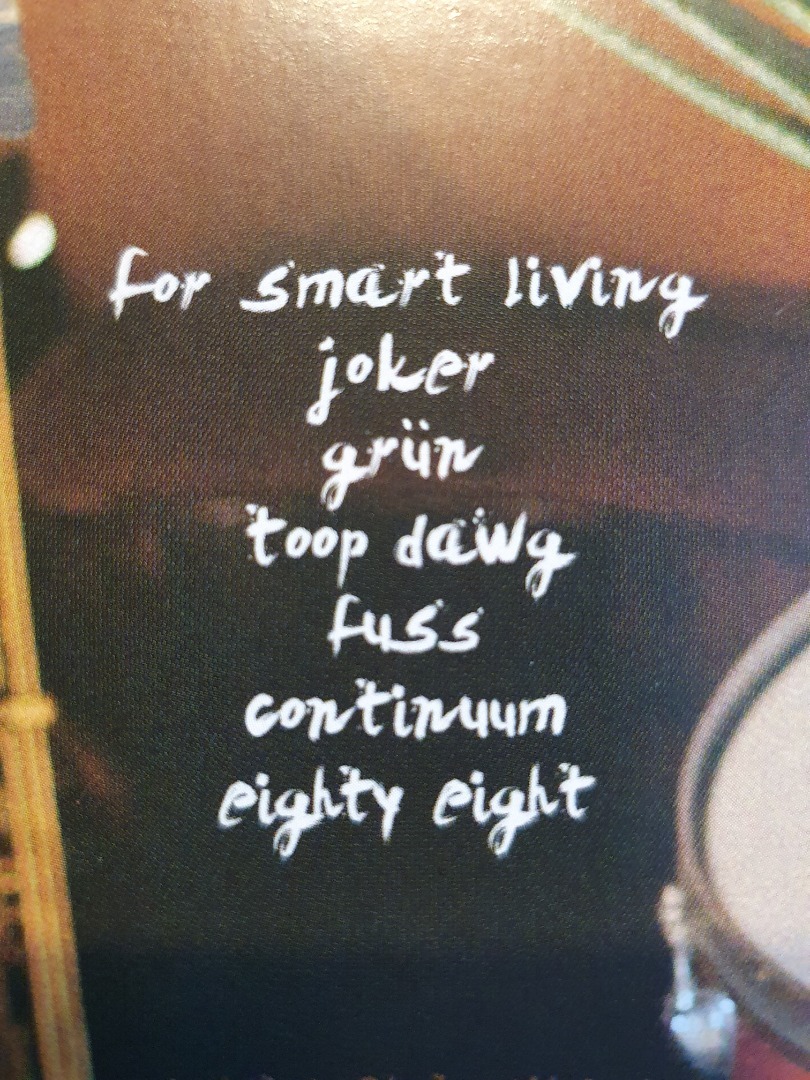 for smart living
joker
grün
toop dawg
fuss
continuum
eighty eight